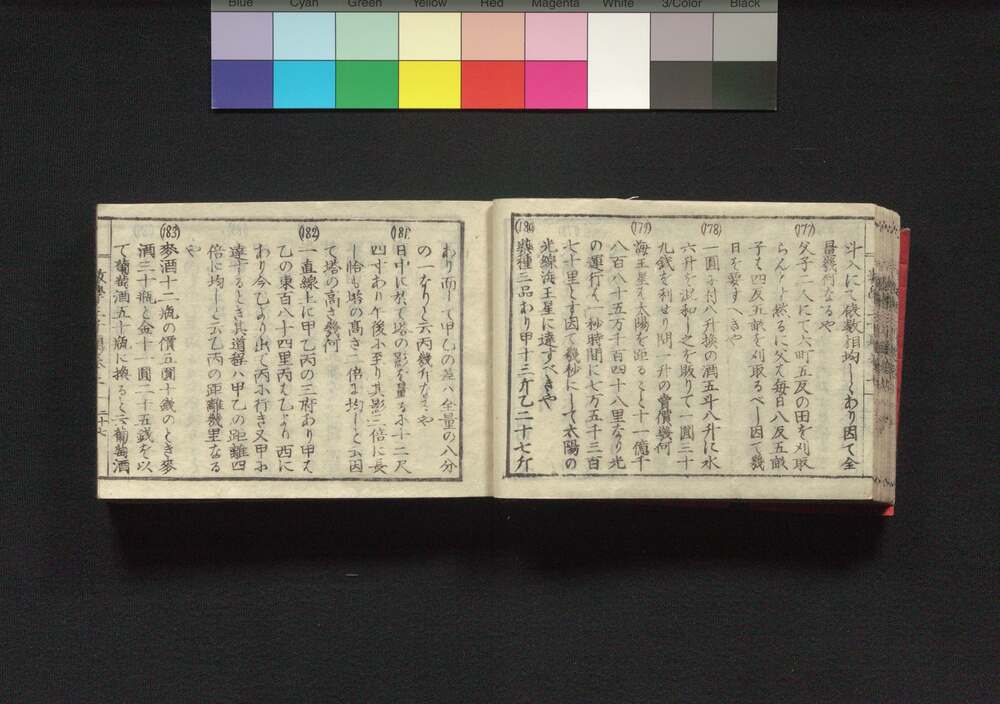 Blue Cyan Green Yellow Red Magenta White 3/Color Black
斗入に一俵數相均しくあり因て全
量幾何なるや
(177)
父子二人にて六町五反の田を刈取
らんとす然るに父ハ毎日八反五畝
子ハ四反五畝を刈取るべし因て幾
日を要すへきや
(178)
一圓ニ付八升換の酒五斗八升に水
六升を混和し之を販りて一圓三十
九銭を利せり問一升の賣價幾何
(179)
海王星ハ太陽を距ること十一億千
八百八十五万千百四十八里なり光
の運行ハ一秒時間に七万五千三百
七十里とす因て幾秒にして太陽の
光線海王星に達すべきや
(180)
藥種三品あり甲十三斤乙二十七斤
あり而して甲乙の差ハ全量の八分
の一なりと云丙幾斤なるや
(181)
日中に於て塔の影を量るに十二尺
四寸あり午後に至り其影三倍に長
し恰も塔の髙さ二倍に均しと云因
て塔の髙さ幾何
(182)
一直線上に甲乙丙の三府あり甲ハ
乙の東百八十四里丙ハ乙より西に
あり今乙より出て丙に行き又甲に
達するとき其道程ハ甲乙の距離四
倍に均しと云乙丙の距離幾里なる
や
(183)
麥酒十二瓶の價五圓十銭のとき麥
酒三十瓶と金十一圓二十五銭を以
て葡萄酒五十瓶に換ると云葡萄酒
二十七